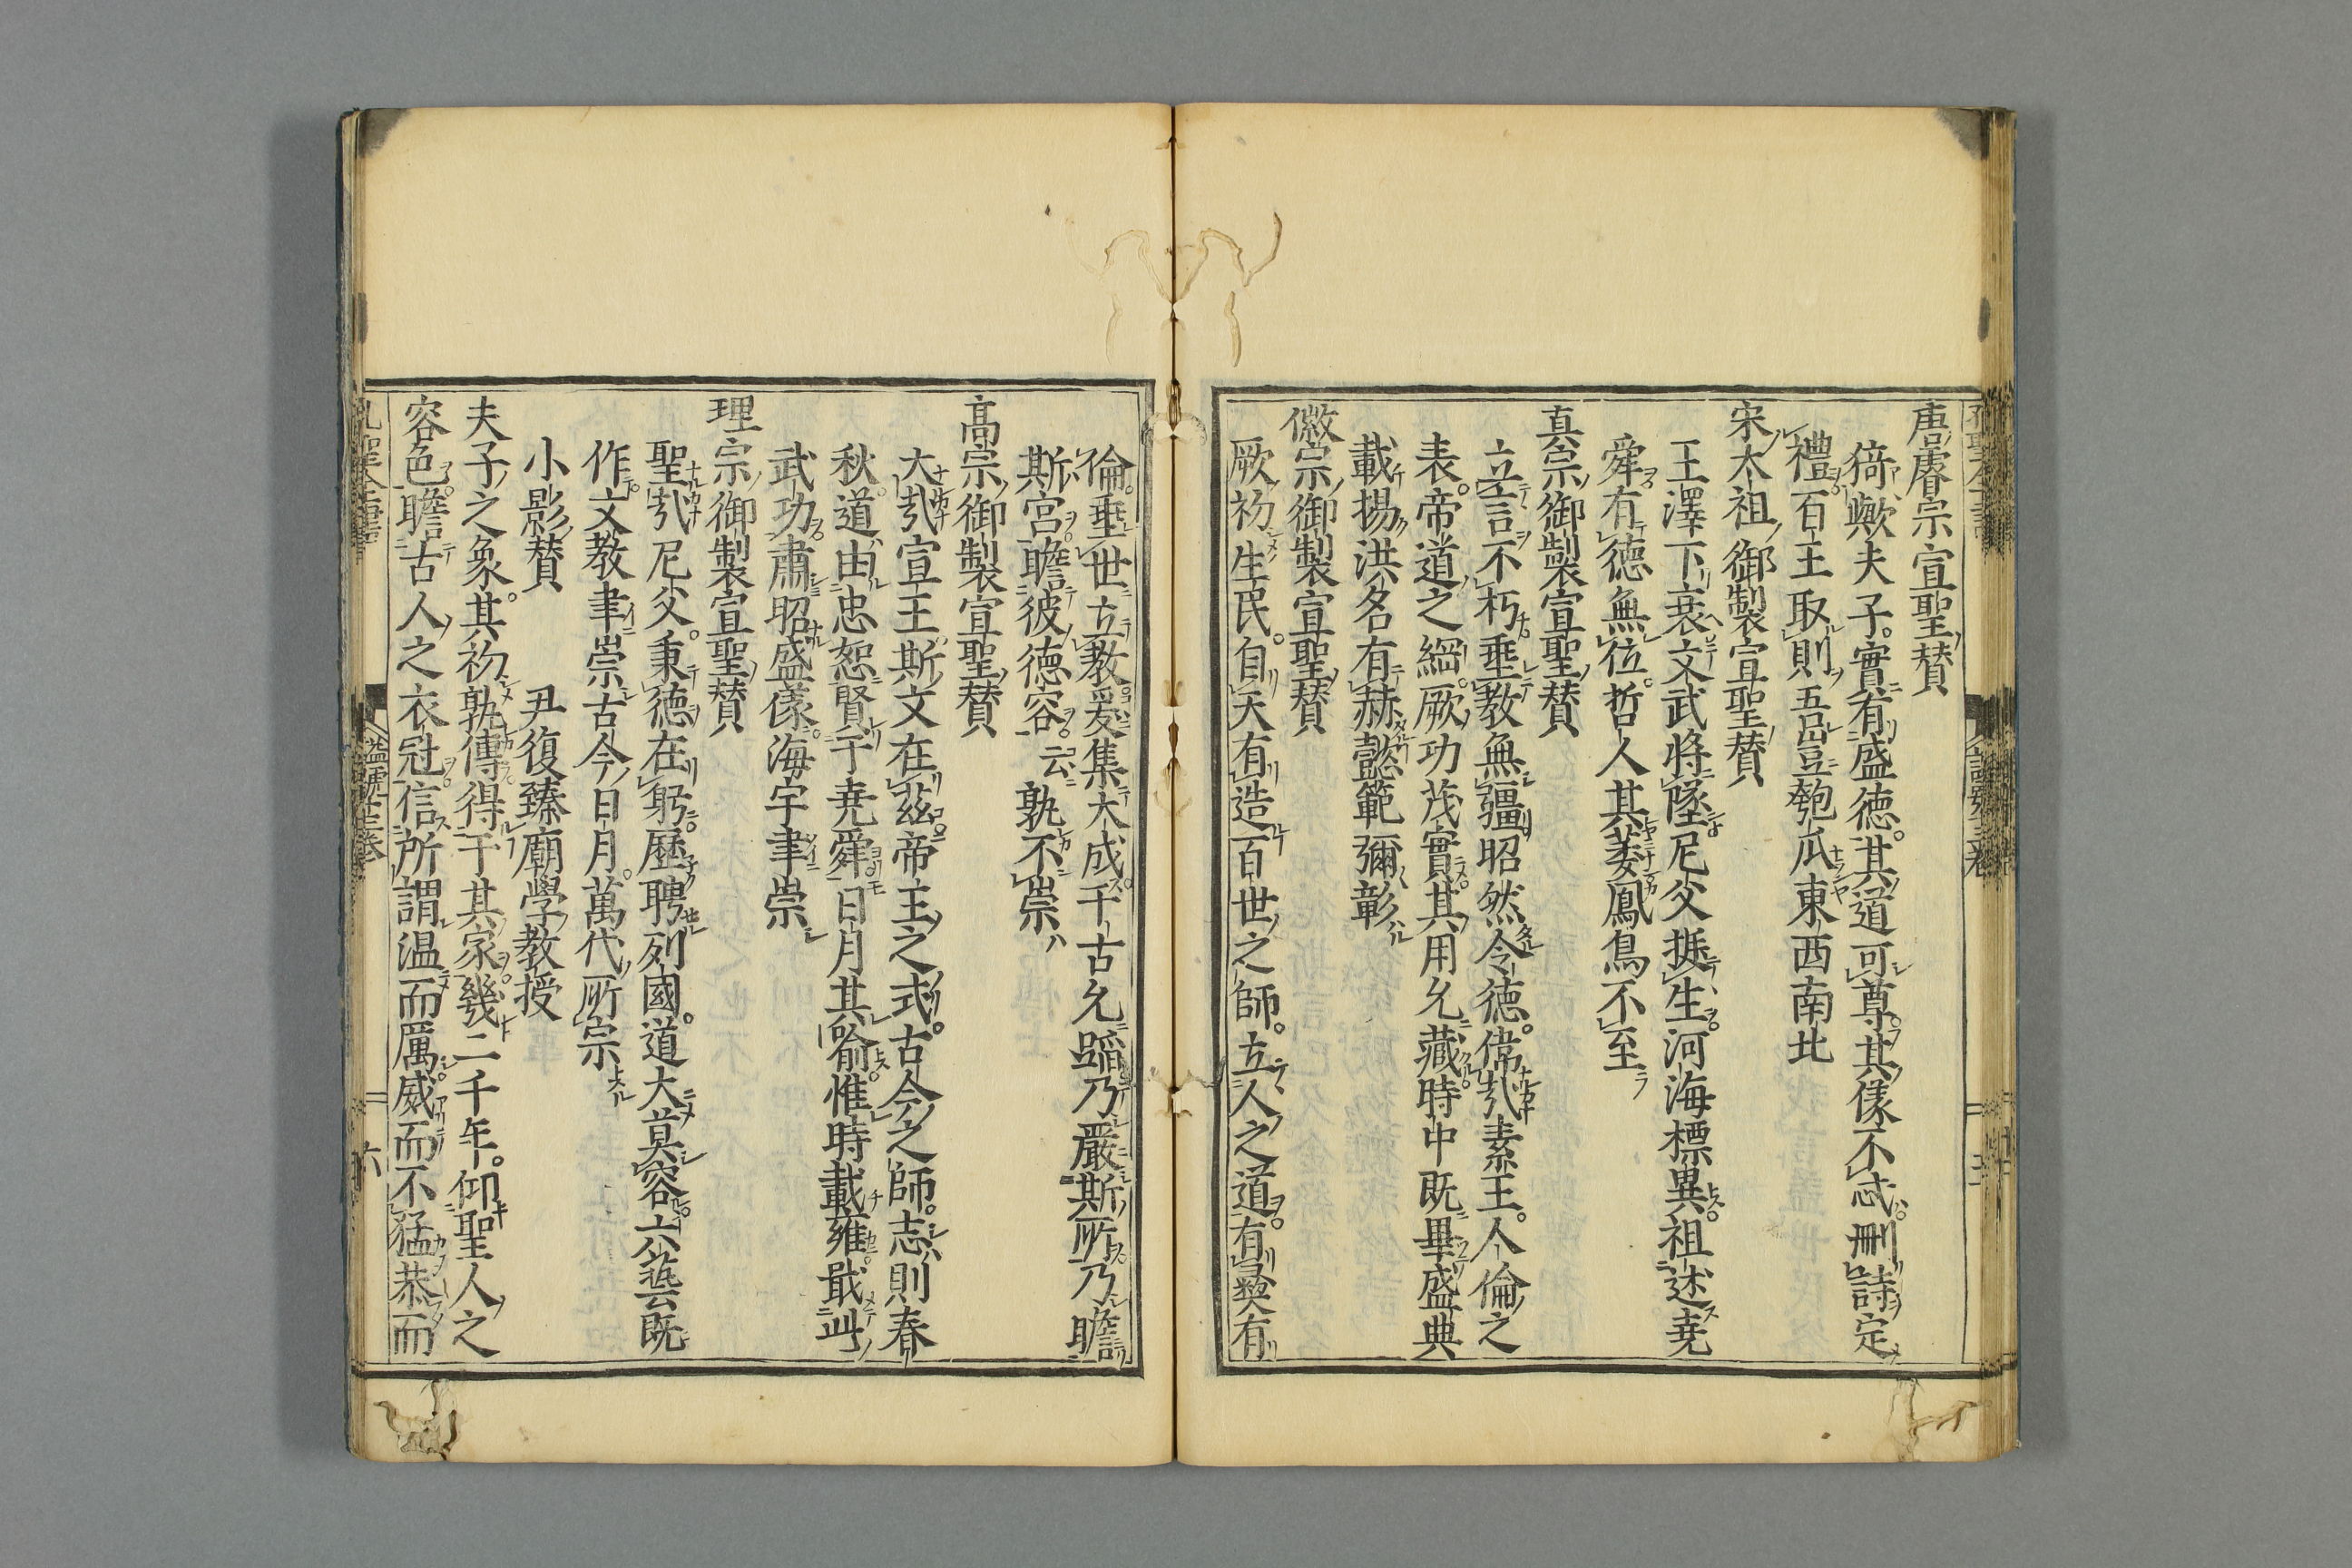 唐睿宗宣聖賛
猗歟夫子實有盛德其道可尊其㨾不忒刪詩定
禮百王取則吾豈匏瓜東西南北
宋太祖御製宣聖賛
王澤下衰文武將墜尼父挺生河海標異祖述堯
舜有德無位哲人其萎鳳鳥不至
真宗御製宣聖賛
立言不朽垂教無疆昭然令德偉哉素王人倫之
表帝道之綱厥功茂實其用允藏時中既畢盛典
載揚洪名有赫懿範彌彰
徽宗御製宣聖賛
厥初生民自天有造百世之師立人之道有彝有
倫垂世立教爰集大成千古允蹈乃嚴斯所乃瞻
斯宮瞻彼德容云孰不崇
高宗御製宣聖賛
大哉宣王斯文在茲帝王之式古今之師志則春
秋道由忠恕賢于堯舜日月其喻惟時載雍戢此
武功肅昭盛㨾海宇聿崇
理宗御製宣聖賛
聖哉尼父秉德在躬歷聘列國道大莫容六藝既
作文教聿崇古今日月萬代所宗
小影賛　尹復臻廟學教授
夫子之象其初孰傳得于其家幾二千年仰聖人之
容色瞻古人之衣冠信所謂温而厲威而不猛恭而
六